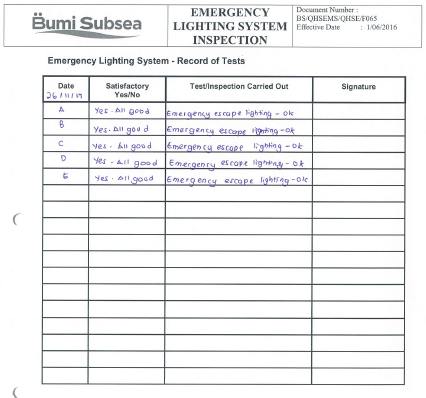 Bumi Subsea
EMERGENCY
LIGHTING SYSTEM
INSPECTION
Document Number :
BS/QHSEMS/QHSE/F065
Effective Date : 1/06/2016
Emergency Lighting System - Record of Tests
Date Satisfactory Yes/No Test/Inspection Carried Out Signature
26/11/17
A Yes - All good Emergency escape lighting - Ok
B Yes - All good Emergency escape lighting - ok
C Yes - All good Emergency escape lighting - ok
D Yes - All good Emergency escape lighting - ok
E Yes - All good Emergency escape lighting - ok